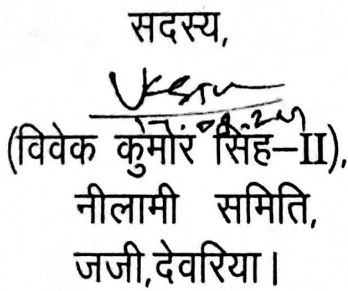 सदस्य,
(विवेक कुमार सिंह–II),
नीलामी समिति,
जजी,देवरिया।